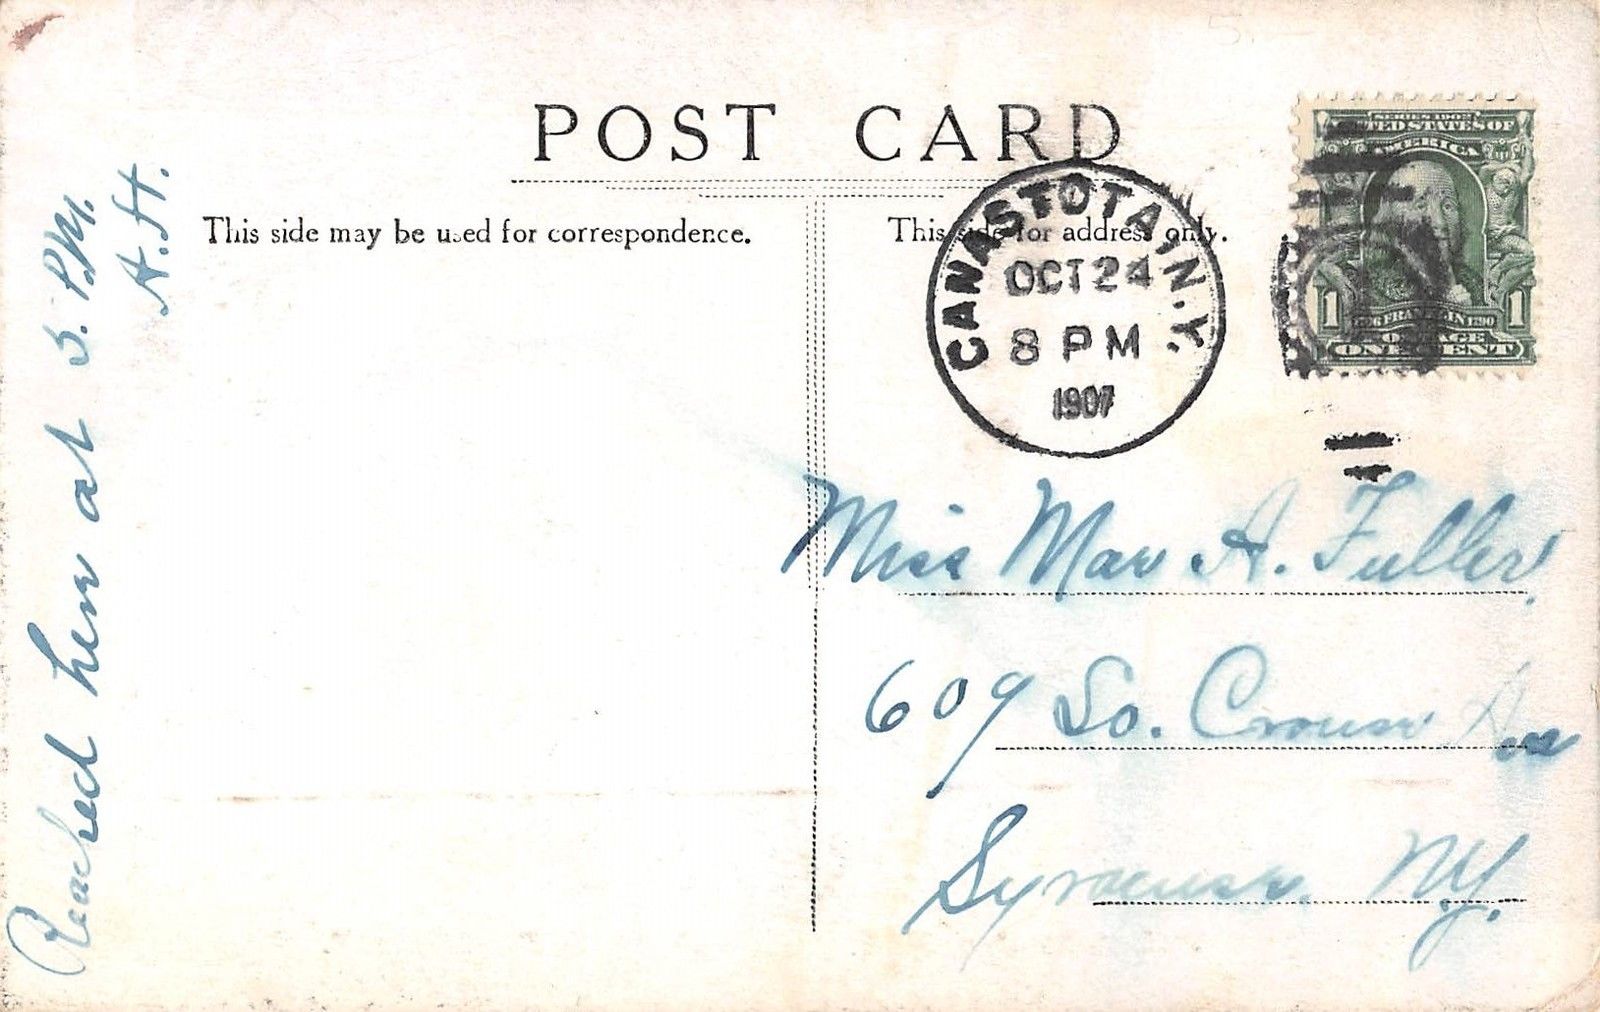 POST CARD
This side may be used for correspondence.
This side for address only.
CANASTOTA, N.Y.
OCT 24
8 PM
1907
SERIES 1902
UNITED STATES OF
AMERICA
1 FRANKLIN 1790 1
POSTAGE
ONE CENT
Miss May A. Fuller
609 So. Crouse Ave
Syracuse. N.Y.
Reached here at 5. P.M.
A. H.